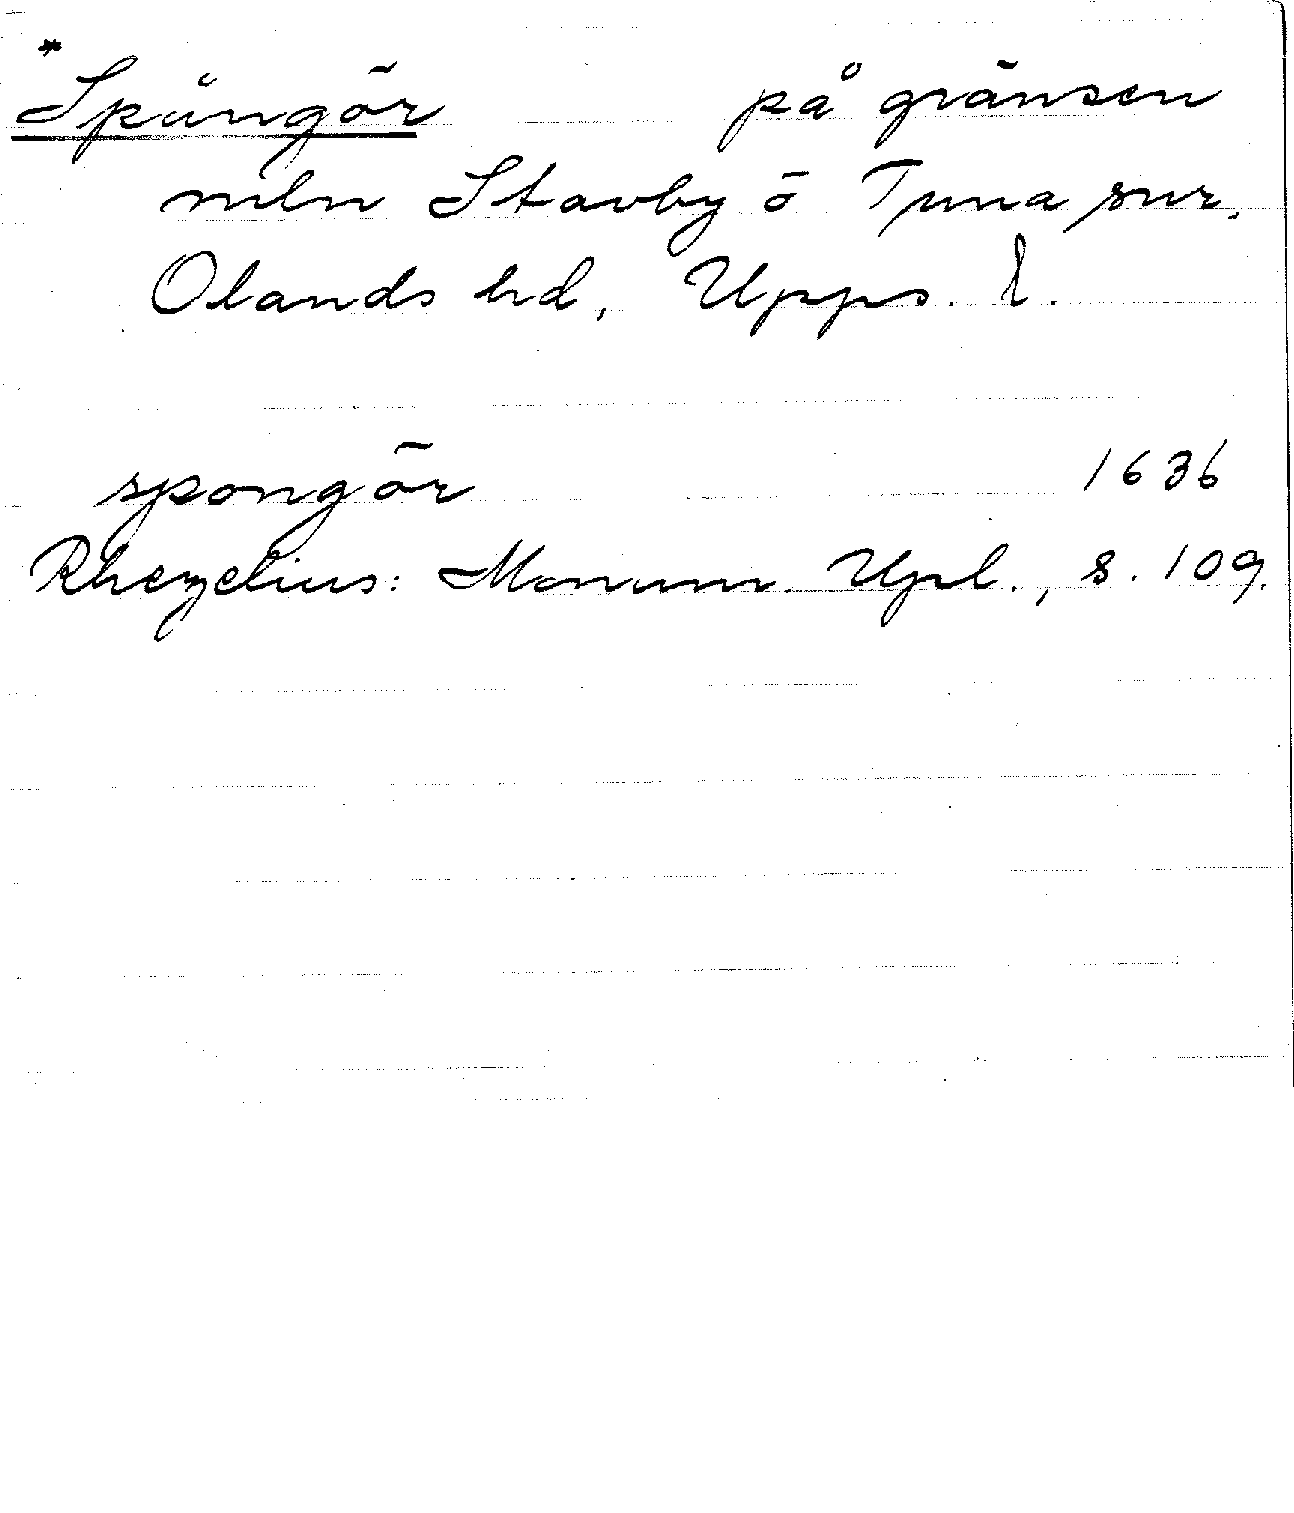 *Spångör på gränsen
mln Stavby ö Tuna snr,
Olands hd, Upps. l.
spongör 1636
Rhezelius: Monum. Upl., s. 109.